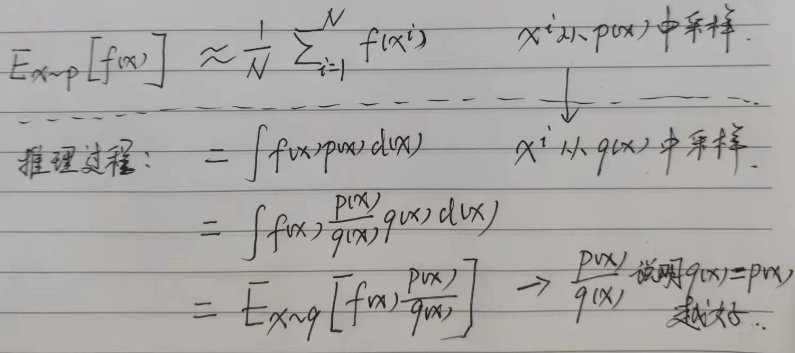 E_{x~p}[f(x)] ≈ \frac{1}{N} \sum_{i=1}^{N} f(x^i) x^i从p(x)中采样.
推理过程: = ∫f(x)p(x)d(x) x^i从q(x)中采样.
= ∫f(x)\frac{p(x)}{q(x)}q(x)d(x)
= E_{x~q}[f(x)\frac{p(x)}{q(x)}] → \frac{p(x)}{q(x)} 说明q(x)=p(x)
越好..